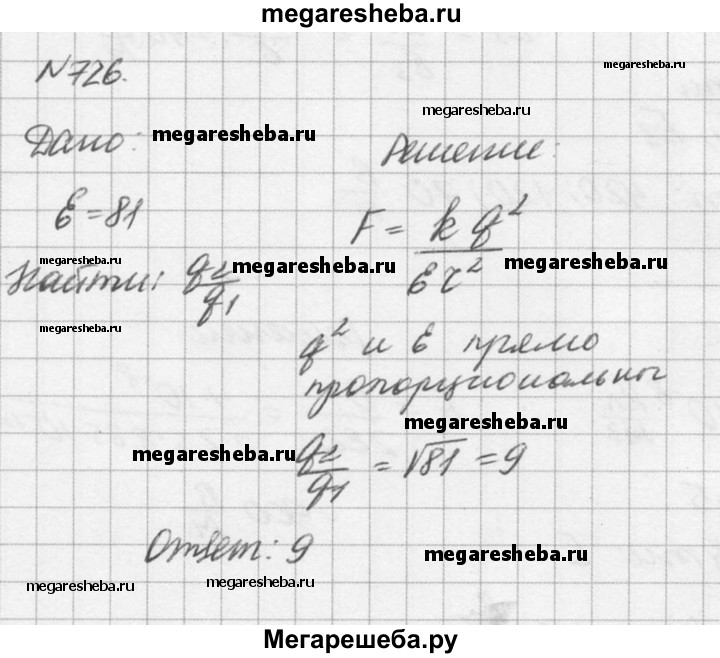 megaresheba.ru
№726.
megaresheba.ru
megaresheba.ru
Дано: megaresheba.ru Решение:
ε=81
F = k q² / ε r²
Найти: q₂/q₁ megaresheba.ru megaresheba.ru
megaresheba.ru
q² и ε прямо
пропорциональны
megaresheba.ru
megaresheba.ru q₂/q₁ = √81 = 9
Ответ: 9 megaresheba.ru
megaresheba.ru megaresheba.ru megaresheba.ru
Мегарешеба.ру